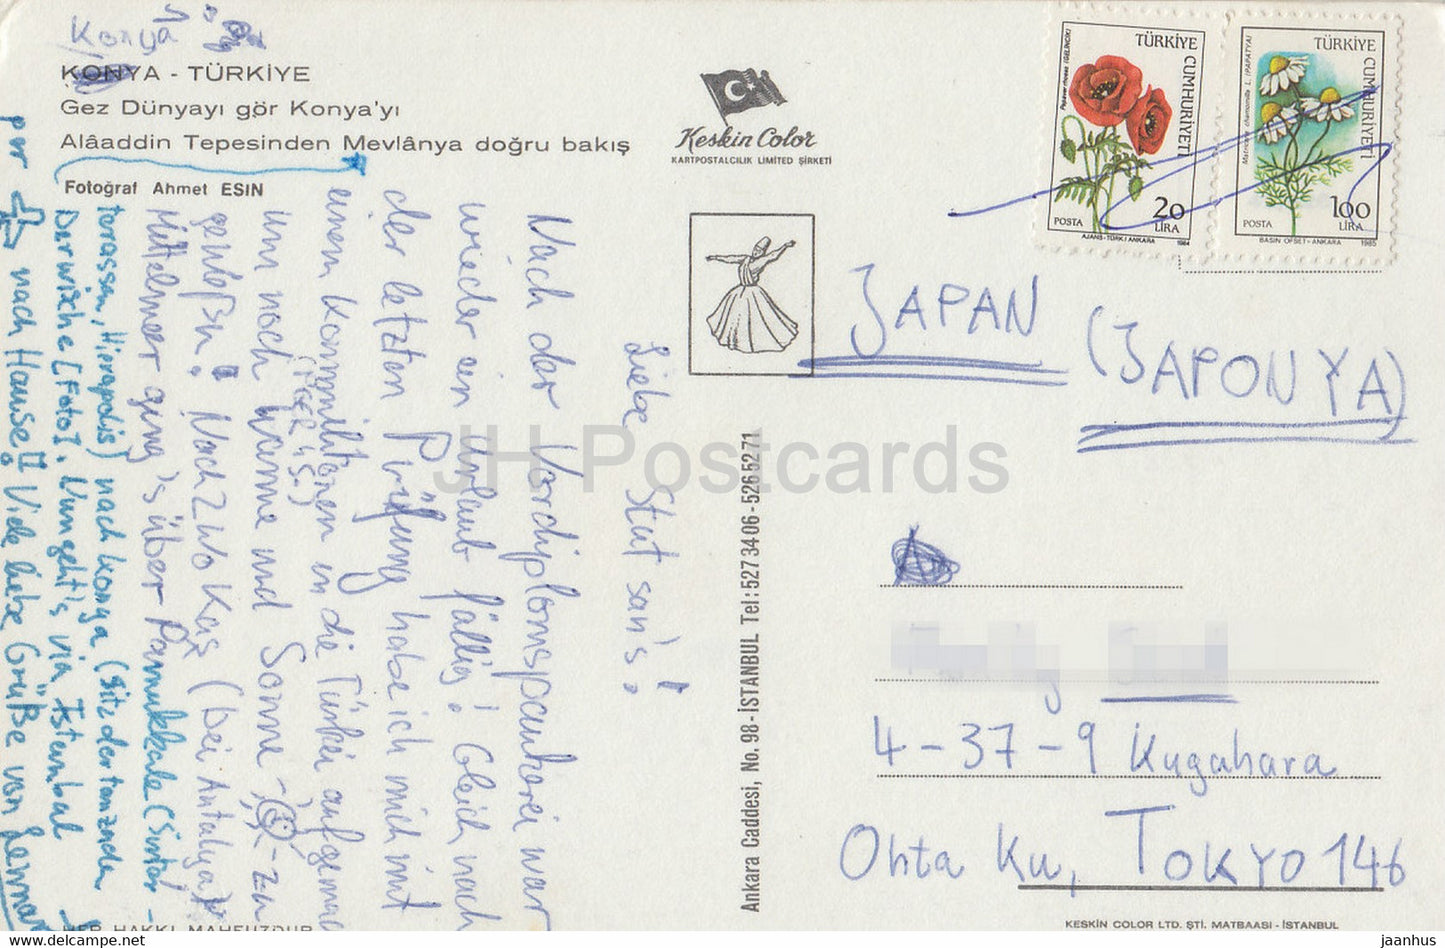 Konya
KONYA - TÜRKİYE
Gez Dünyayı gör Konya'yı
Alâaddin Tepesinden Mevlânya doğru bakış
Fotoğraf Ahmet ESIN
Keskin Color
KARTPOSTALCILIK LIMITED ŞİRKETİ
Papaver rhoeas (GELİNCİK)
TÜRKİYE CUMHURİYETİ
POSTA
20
LİRA
AJANS-TÜRK/ANKARA 1984
Matricaria chamomilla L. (PAPATYA)
TÜRKİYE CUMHURİYETİ
POSTA
100
LİRA
BASIN OFSET-ANKARA 1985
Liebe Stut san's!
Nach der Vordiplomspaukerei war
wieder ein Urlaub fällig! Gleich nach
der letzten Prüfung habe ich mich mit
einem Kommilitonen in die Türkei aufgemacht
um noch Wärme und Sonne - zu
genießen! Nach 2 Wo Kaş (bei Antalya)
Mittelmeer ging's über Pamukkale (Sinter-
terassen, Hierapolis) nach Konya (Sitz der tanzenden
Derwische [Foto]. Nun geht's via Istanbul
per nach Hause!! Viele liebe Grüße von
JAPAN
(JAPONYA)
4-37-9 Kugahara
Ohta Ku, TOKYO 146
Ankara Caddesi, No. 98 - İSTANBUL Tel: 527 34 06 - 526 52 71
HER HAKKI MAHFUZDUR
KESKİN COLOR LTD. ŞTİ. MATBAASI - İSTANBUL
JH Postcards
jaanhus